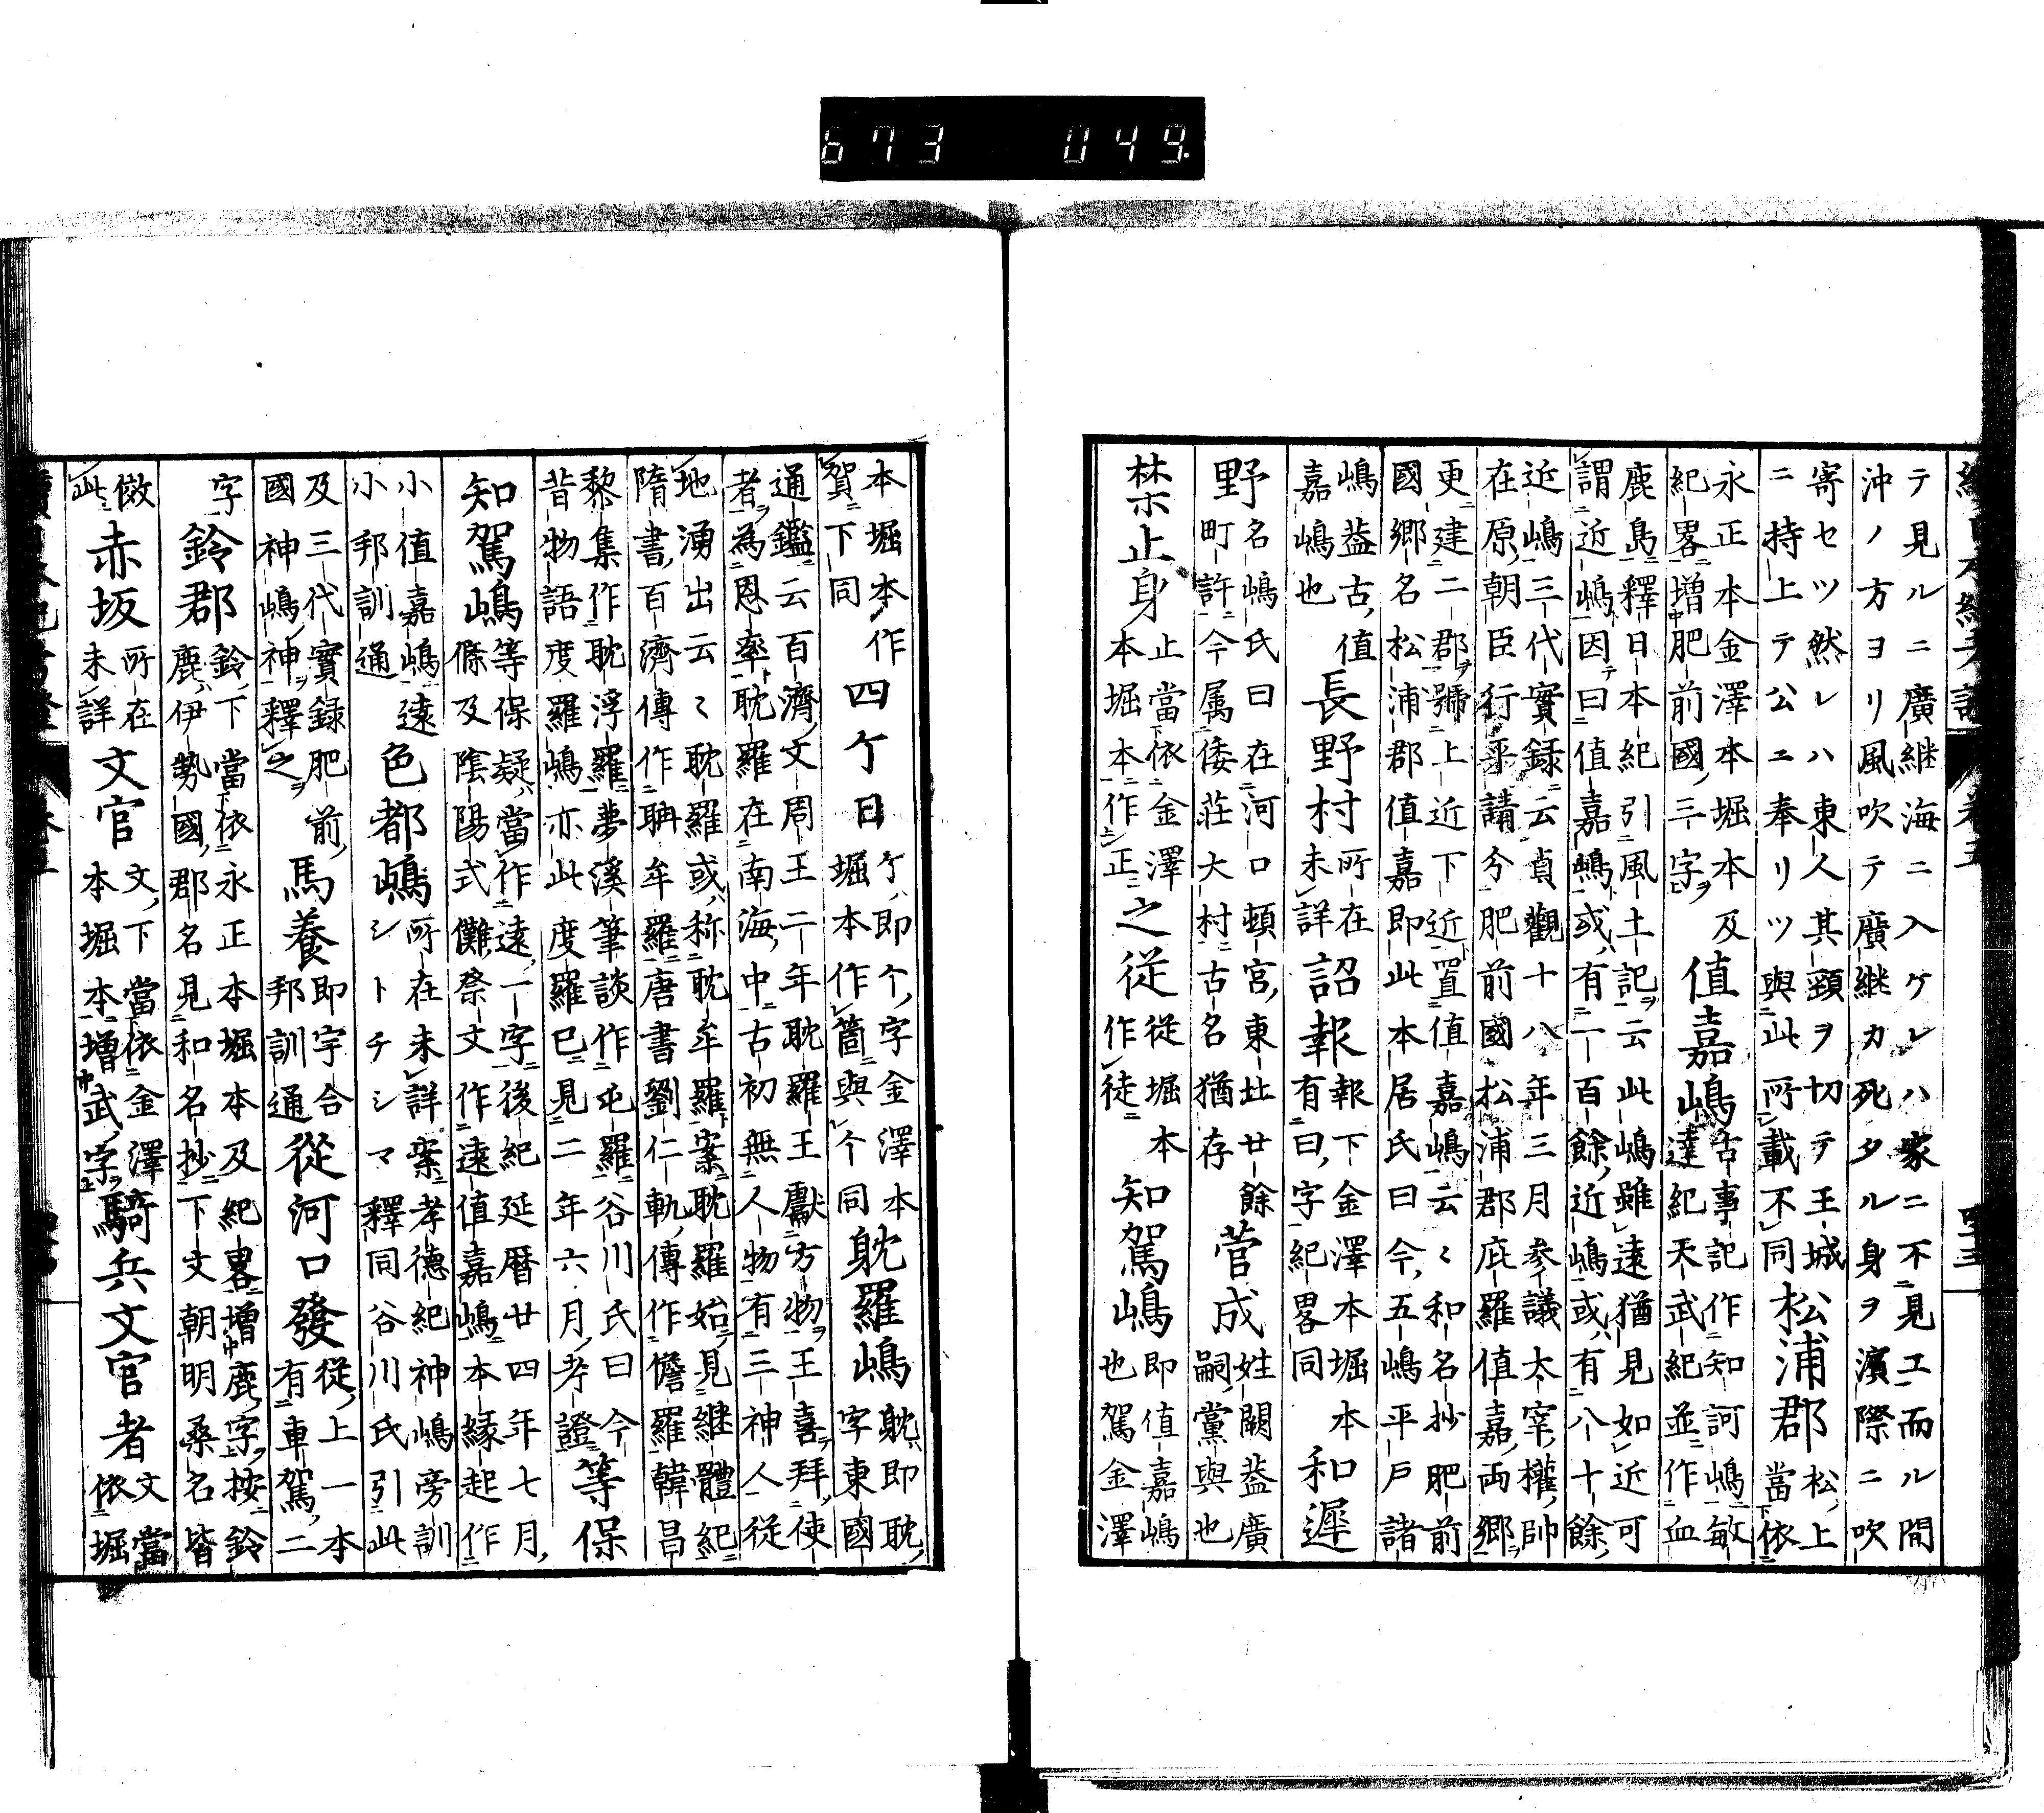 673 049
テ見ルニ廣継海ニ入ケレハ家ニ不見エ而ル間
沖ノ方ヨリ風吹テ廣継カ死タル身ヲ濱際ニ吹
寄セツ然レハ東人其頸ヲ切テ王城
ニ持上テ公エ奉リツ與此所載不同
松浦郡
松上
當依
永正本金澤本堀本及
紀畧増肥前國三字
値嘉嶋
古事記作知訶嶋敏
達紀天武紀並作血
鹿島釋日本紀引風土記云此嶋雖遠猶見如近可
謂近嶋因曰値嘉嶋或有一百餘近嶋或有八十餘
近嶋三代實録云貞觀十八年三月参議太宰權帥
在原朝臣行平請分肥前國松浦郡庇羅値嘉両郷
更建二郡號上近下近置値嘉嶋云〻和名抄肥前
國郷名松浦郡値嘉即此本居氏曰今五嶋平戸諸
嶋葢古値
嘉嶋也
長野村
所在
未詳
詔報
報下金澤本堀本
有曰字紀畧同
和遲
野
名嶋氏曰在河口頓宮東北廿餘
町許今属倭荘大村古名猶存
菅成
姓闕葢廣
嗣黨與也
禁止身
止當依金澤
本堀本作正
之従
從堀本
作徒
知駕嶋
即値嘉嶋
也駕金澤
本堀本作
賀下同
四ケ日
ケ即个字金澤本
堀本作箇與个同
躭羅嶋
躭即耽
字東國
通鑑云百濟文周王二年耽羅王獻方物王喜拜使
者為恩率耽羅在南海中古初無人物有三神人從
地湧出云〻耽羅或称耽牟羅案耽羅始見継體紀
隋書百濟傳作聃牟羅唐書劉仁軌傳作儋羅韓昌
黎集作耽浮羅夢溪筆談作屯羅谷川氏曰今
昔物語度羅嶋亦此度羅已見二年六月考證
等保
知駕嶋
等保疑當作遠一字後紀延暦廿四年七月
條及陰陽式儺祭文作遠値嘉嶋本縁起作
小値嘉嶋遠
小邦訓通
色都嶋
所在未詳案孝德紀神嶋旁訓
シトチシマ釋同谷川氏引此
及三代實録肥前
國神嶋神釋之
馬養
即宇合
邦訓通
從河口發
従上一本
有車駕二
字
鈴郡
鈴下當依永正本堀本及紀畧増鹿字按鈴
鹿伊勢國郡名見和名抄下文朝明桑名皆
倣
此
赤坂
所在
未詳
文官
文下當依金澤
本堀本本増武字
騎兵文官者
文當
依堀